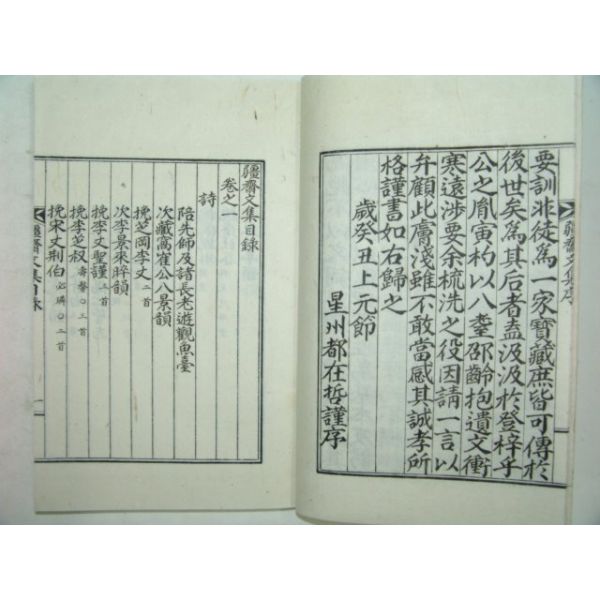 要訓非徒為一家寶藏庶皆可傳於
後世矣為其后者盍汲汲於登梓乎
公之胤寅杓以八耋邵齡抱遺文衝
寒遠涉要余梳洗之役因請一言以
弁顧此膚淺雖不敢當感其誠孝所
格謹書如右歸之
歲癸丑上元節
星州都在哲謹序
疆齋文集序
疆齋文集目錄
卷之一
詩
陪先師及諸長老遊觀魚臺
次藏窩崔公八景韻
挽芝岡李丈 二首
次李景來晬韻
挽李丈聖謹 二首
挽李芝叔 壽馨○三首
挽宋丈荆伯 必璘○二首
疆齋文集目錄
一